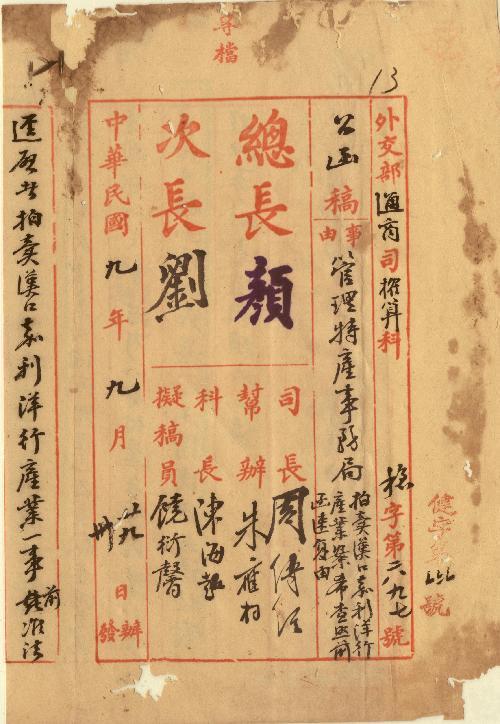 13
號
外交部通商司榷算科
榷字第六八九七號
公函稿
事由
管理特產事務局
拍賣漢口嘉利洋行
產業案希查照前
函速復由
總長顏
次長劉
司長周傳經
幫辦朱應杓
科長陳海超
擬稿員饒衍馨
中華民國九年九月廿九日辦
卅發
逕啟者拍賣漢口嘉利洋行產業一事前准法